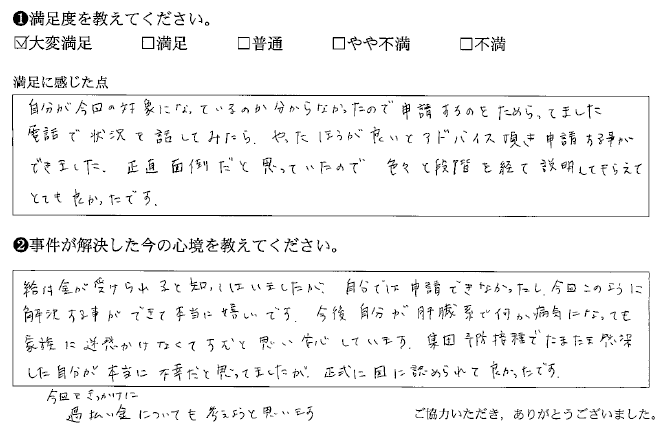 ❶満足度を教えてください。
☑大変満足 □満足 □普通 □やや不満 □不満
満足に感じた点
自分が今回の対象になっているのか分からなかったので申請するのをためらってました
電話で状況を話してみたら、やったほうが良いとアドバイス頂き申請する事が
できました。正直面倒だと思っていたので色々と段階を経て説明してもらえて
とても良かったです。
❷事件が解決した今の心境を教えてください。
給付金が受けられると知ってはいましたが、自分では申請できなかったし、今回このように
解決する事ができて本当に嬉しいです。今後自分が肝臓系で何か病気になっても
家族に迷惑かけなくてすむと思い安心しています。集団予防接種でたまたま感染
した自分が本当に不幸だと思ってましたが、正式に国に認められて良かったです。
今回をきっかけに
過払い金についても考えようと思います
ご協力いただき、ありがとうございました。